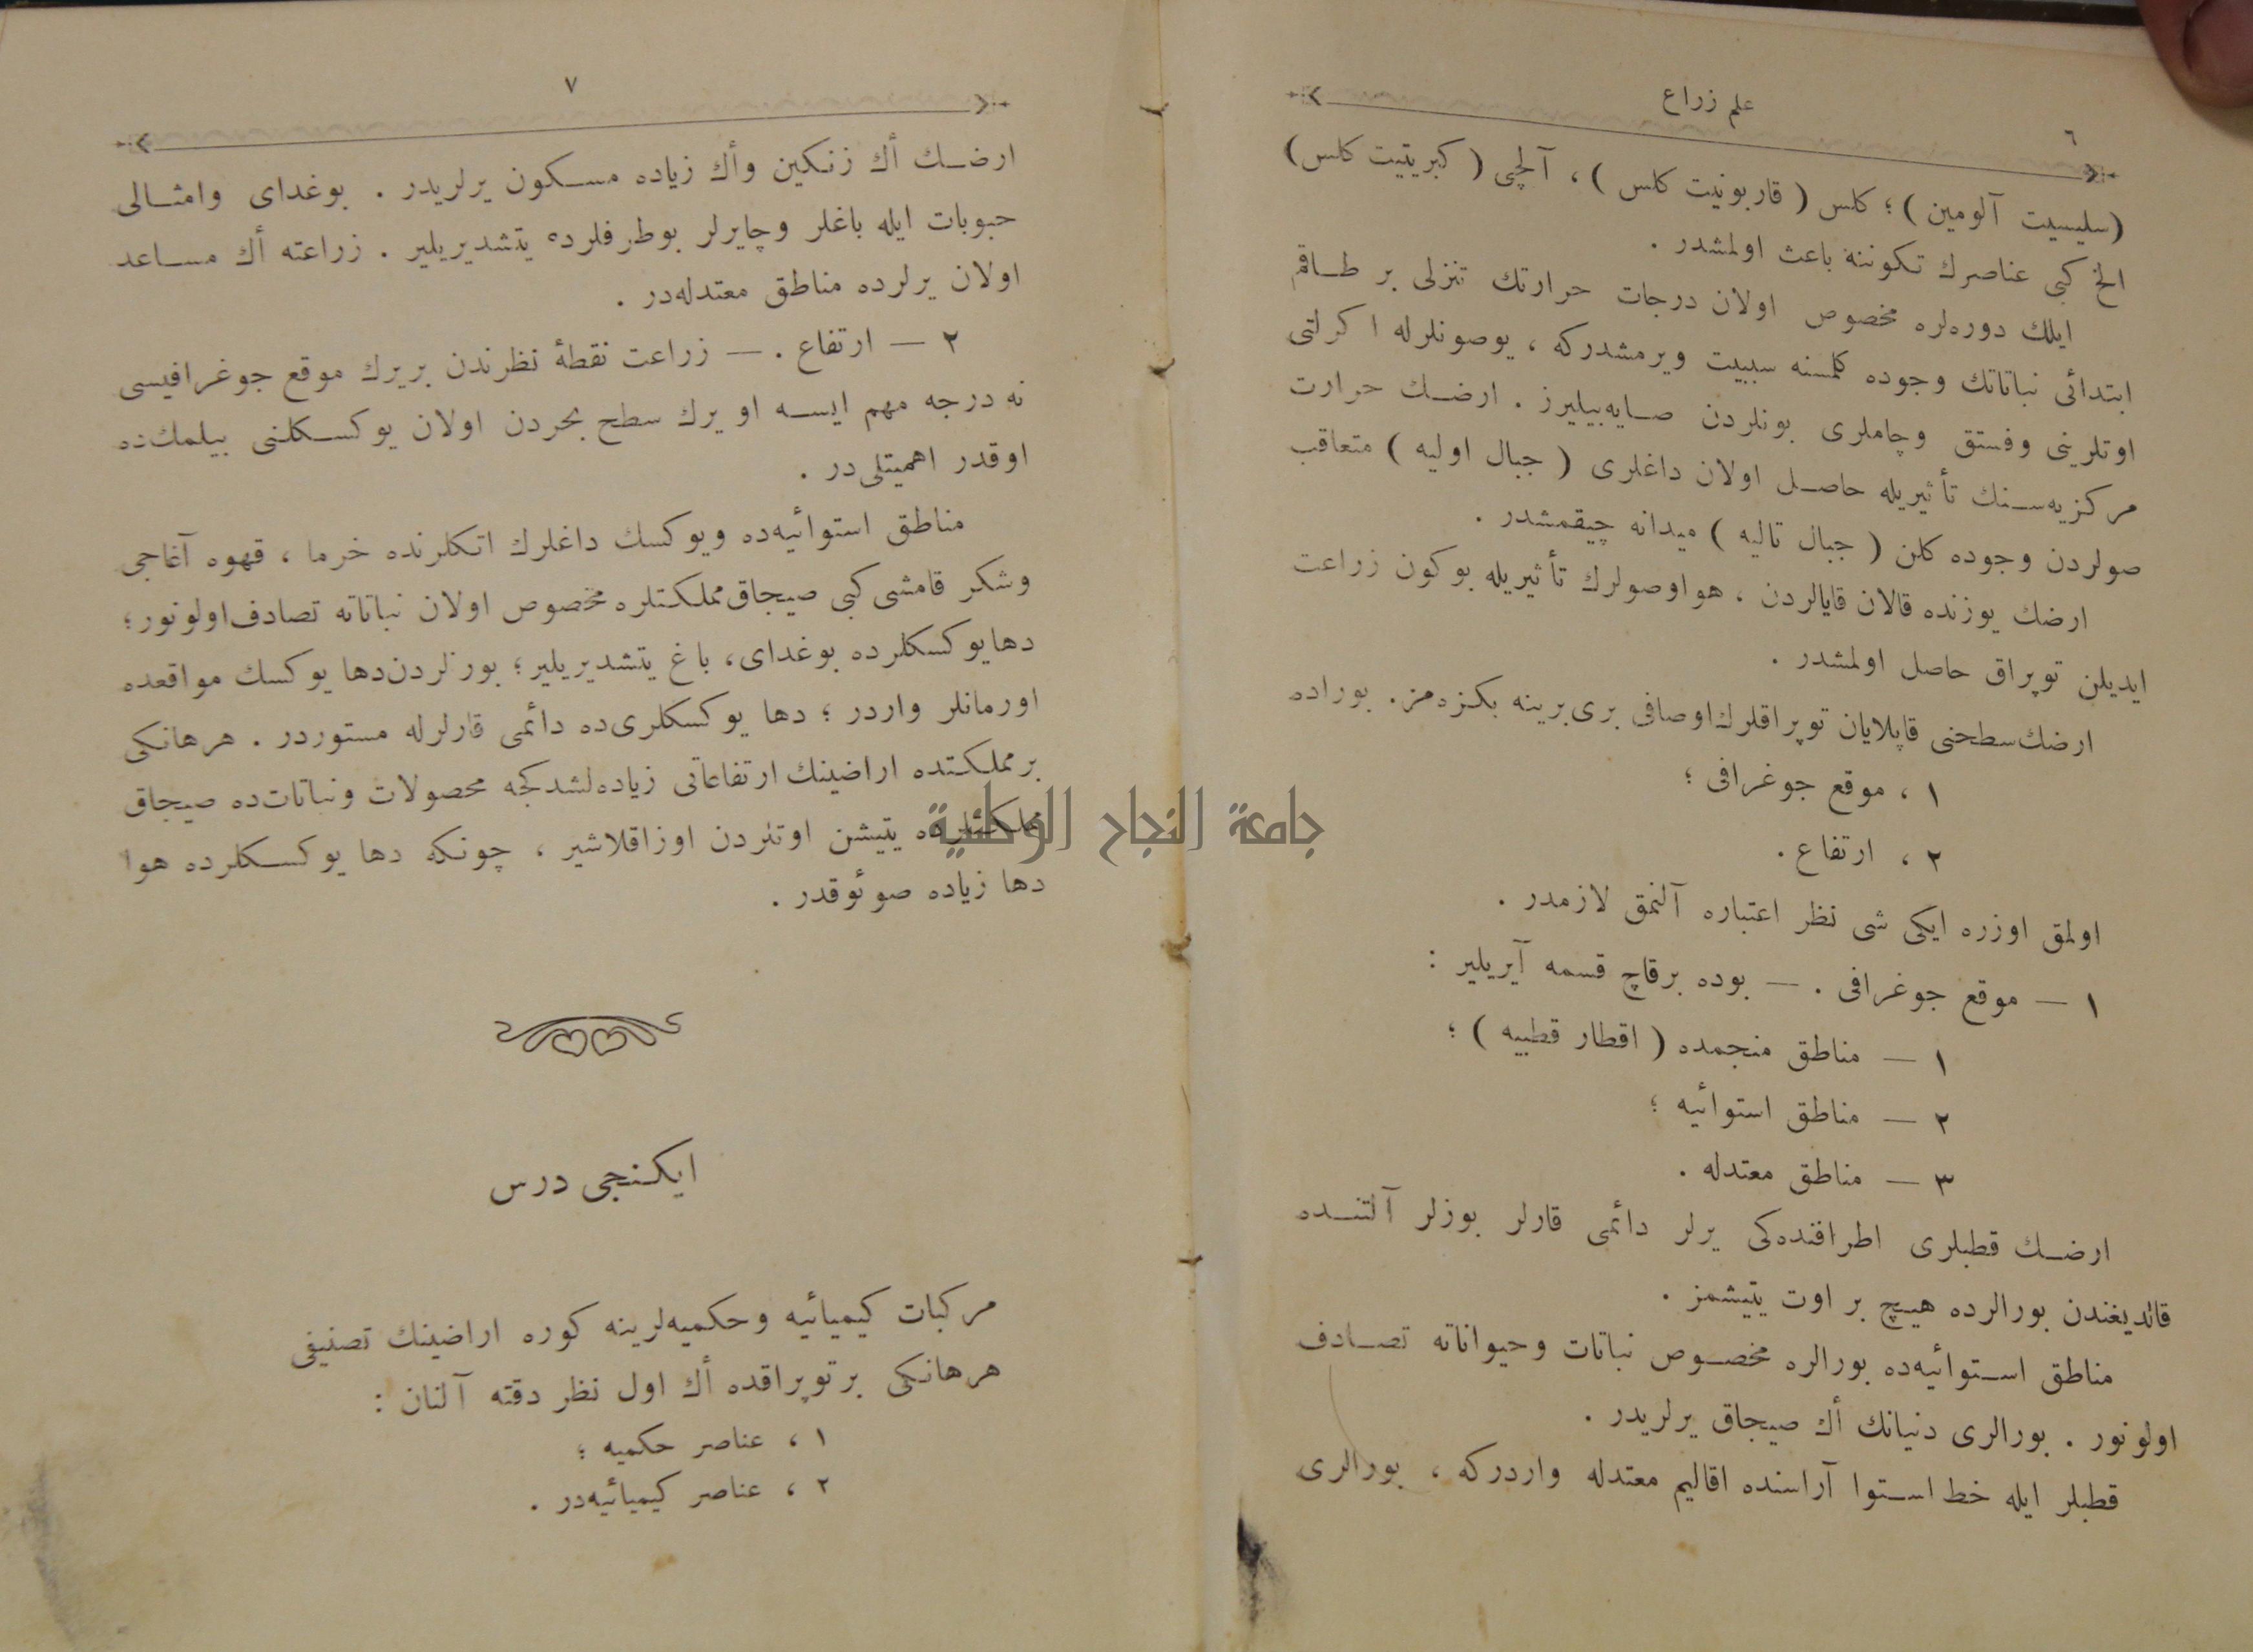 ٦
علم زراع
(سليسيت آلومين) ؛ كلس ( قاربونيت كلس ) ، آلچى ( كبريتيت كلس)
الخ كبى عناصرك تكوننه باعث اولمشدر .
ايلك دوره‌لره مخصوص اولان درجات حرارتك تنزلى بر طـاقم
ابتدائى نباتاتك وجوده كلمسنه سببيت ويرمشدركه ، يوصونلرله اكرلتى
اوتلرينى وفستق وچاملرى بونلردن صـايه‌بيليرز . ارضـك حرارت
مركزيه‌سـنك تأثيريله حاصـل اولان داغلرى ( جبال اوليه ) متعاقب
صولردن وجوده كلن ( جبال تاليه ) ميدانه چيقمشدر .
ارضك يوزنده قالان قايالردن ، هواوصولرك تأثيريله بوكون زراعت
ايديلن توپراق حاصل اولمشدر .
ارضك‌سطحنى قاپلايان توپراقلرك‌اوصافى برى‌برينه بكزه‌مز . بوراده
١ ، موقع جوغرافى ؛
٢ ، ارتفاع .
اولمق اوزره ايكى شى نظر اعتباره آلنمق لازمدر .
١ — موقع جوغرافى . — بوده برقاچ قسمه آيريلير :
١ — مناطق منجمده ( اقطار قطبيه ) ؛
٢ — مناطق استوائيه ؛
٣ — مناطق معتدله .
ارضـك قطبلرى اطرافنده‌كى يرلر دائمى قارلر بوزلر آلتنـده
قالديغندن بورالرده هيـچ بر اوت يتيشمز .
مناطق اسـتوائيه‌ده بورالره مخصـوص نباتات وحيواناته تصـادف
اولونور . بورالرى دنيانك أك صيجاق يرلريدر .
قطبلر ايله خط اسـتوا آراسنده اقاليم معتدله واردركه ، بورالرى
٧
ارضـك أك زنكين وأك زياده مسـكون يرلريدر . بوغداى وامثـالى
حبوبات ايله باغلر وچايرلر بوطرفلرده يتشديريلير . زراعته أك مسـاعد
اولان يرلرده مناطق معتدله‌در .
٢ — ارتفاع . — زراعت نقطهٔ نظرندن بريرك موقع جوغرافيسى
نه درجه مهم ايسـه او يرك سطح بحردن اولان يوكسـكلنى بيلمك‌ده
اوقدر اهميتلى‌در .
مناطق استوائيه‌ده ويوكسك داغلرك اتكلرنده خرما ، قهوه آغاجى
وشكر قامشى كبى صيجاق‌مملكتلره مخصوص اولان نباتاته تصادف‌اولونور ؛
دهايوكسكلرده بوغداى ، باغ يتشديريلير ؛ بورلردن‌دها يوكسك مواقعده
اورمانلر واردر ؛ دها يوكسكلرى‌ده دائمى قارلرله مستوردر . هرهانكى
برمملكتده اراضينك ارتفاعاتى زياده‌لشدكجه محصولات ونباتات‌ده صيجاق
مملكتلرده يتيشن اوتلردن اوزاقلاشير ، چونكه دها يوكسـكلرده هوا
دها زياده صوئوقدر .
جامعة النجاح الوطنية
ايكنجى درس
مركبات كيميائيه وحكميه‌لرينه كوره اراضينك تصنيفى
هرهانكى برتوپراقده أك اول نظر دقته آلنان :
١ ، عناصر حكميه ؛
٢ ، عناصر كيميائيه‌در .